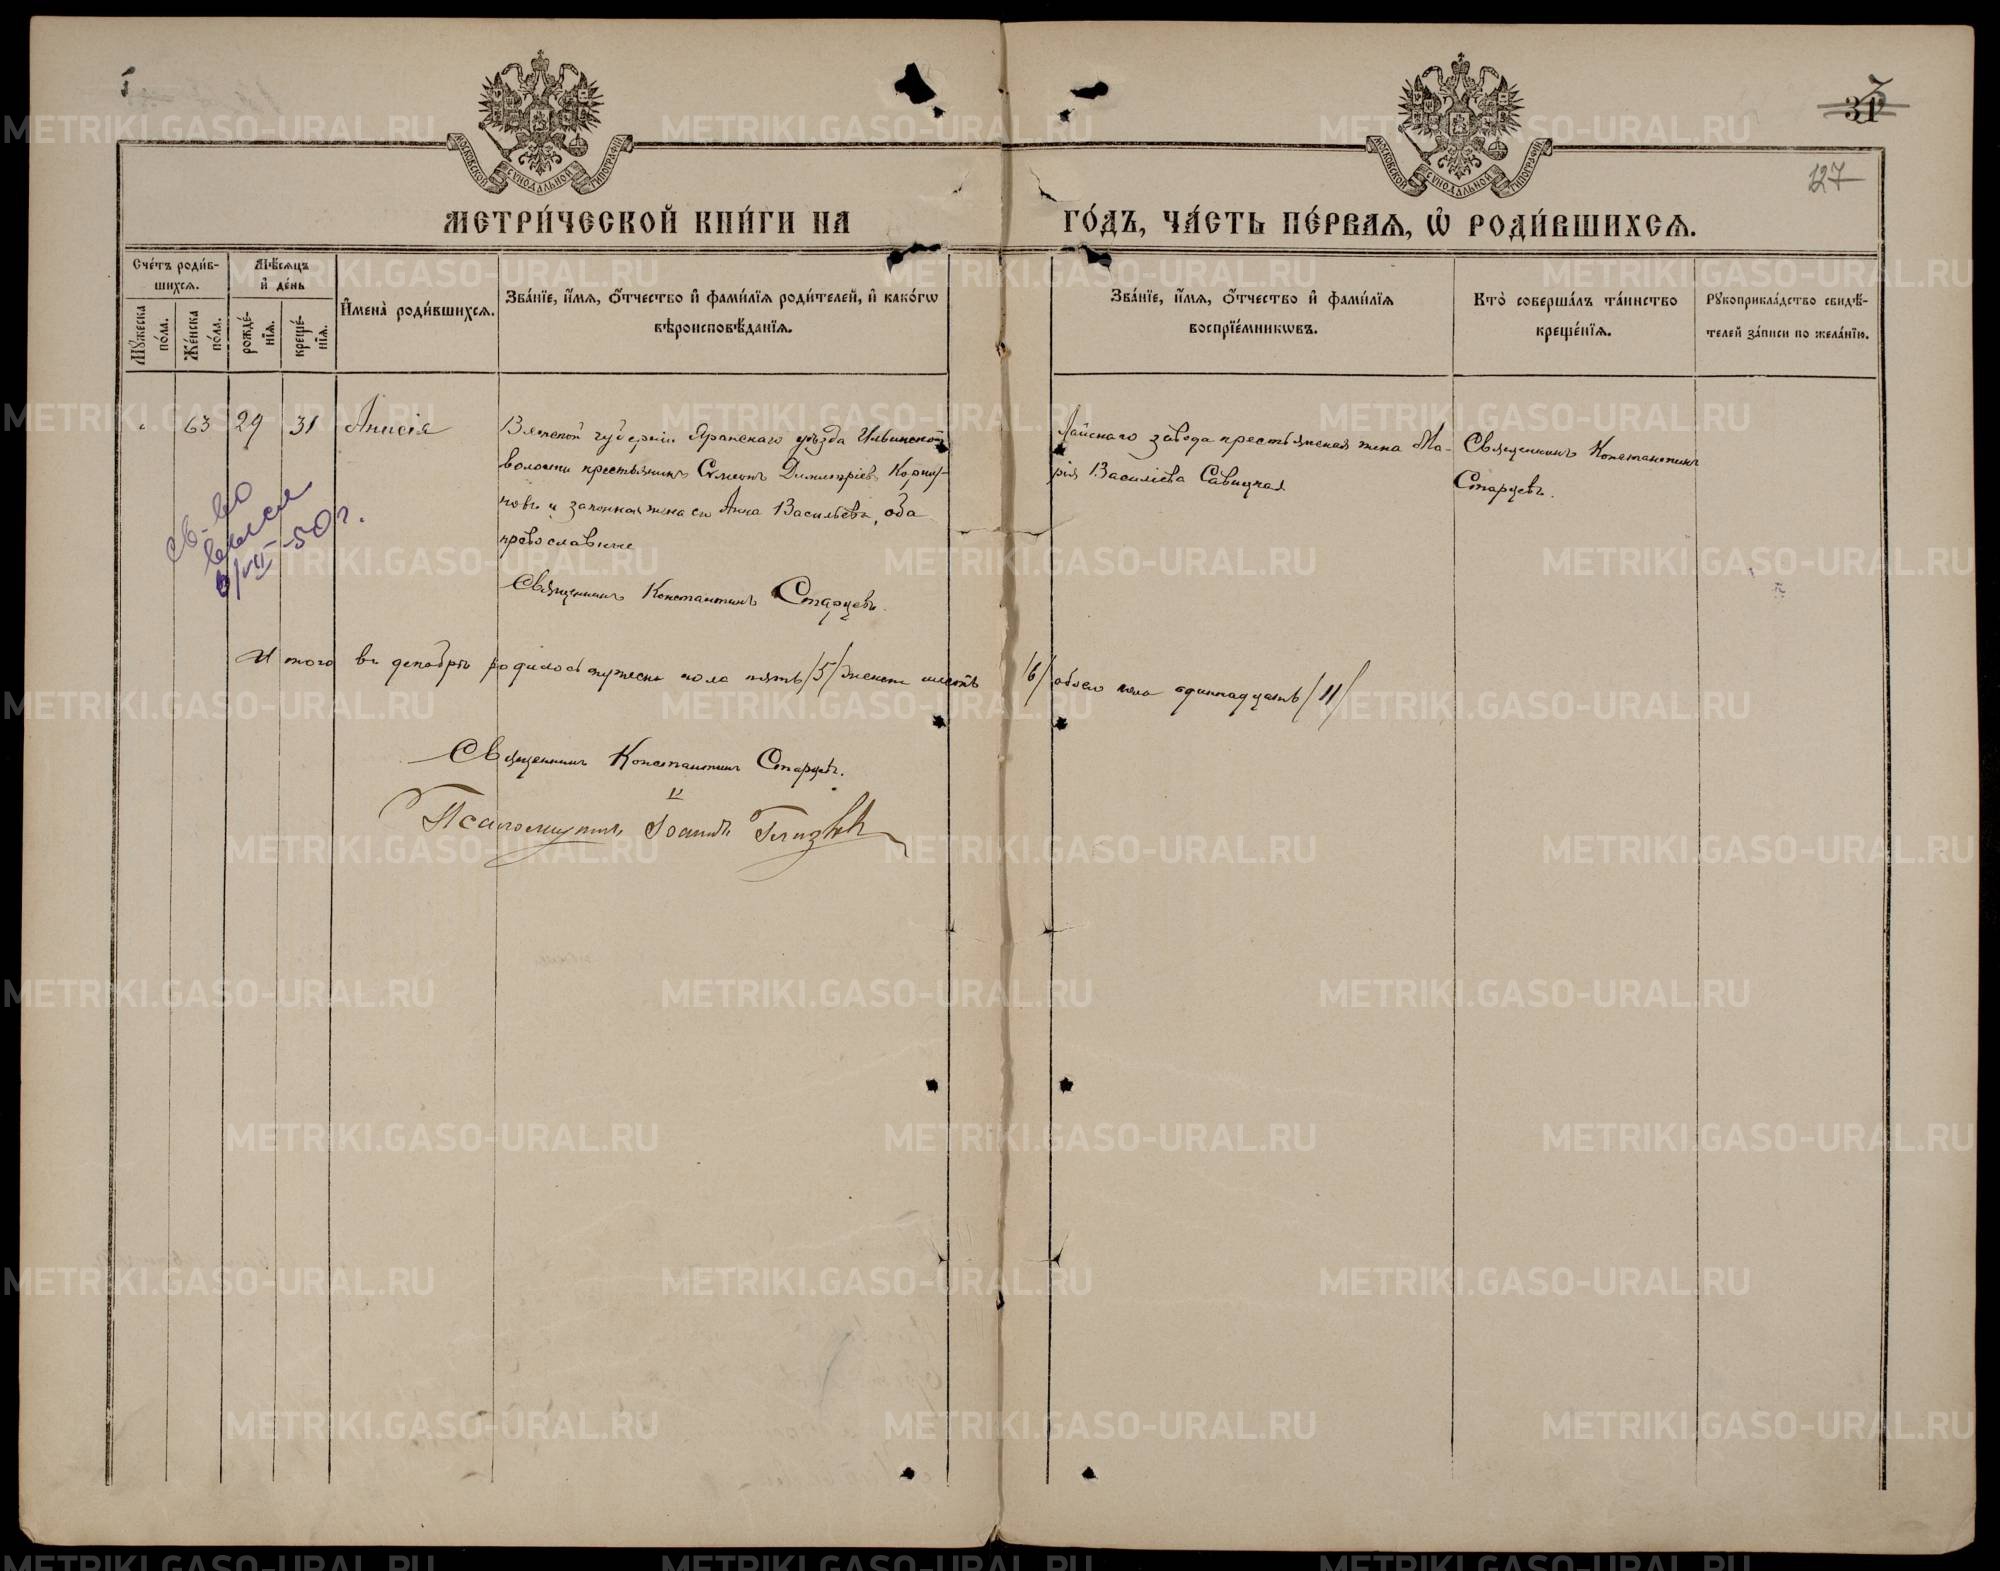 127
МОСКОВСКОЙ СѴНОДАЛЬНОЙ ТИПОГРАФІИ
МОСКОВСКОЙ СѴНОДАЛЬНОЙ ТИПОГРАФІИ
МЕТРИ́ЧЕСКОЙ КНИ́ГИ НА ГО́ДЪ, ЧА́СТЬ ПЕ́РВАѦ, Ѡ҆ РОДИ́ВШИХСѦ.
Сче́тъ роди́в-
шихсѧ.
Мꙋ́жеска по́ла.
Же́нска по́ла.
Мѣ́сѧцъ и҆ де́нь
рожде́-нїѧ.
креще́-нїѧ.
И҆мена̀ роди́вшихсѧ.
Зва́нїе, и҆́мѧ, ѻ҆́тчество и҆ фами́лїѧ роди́телей, и҆ како́гѡ
вѣроисповѣ́данїѧ.
Зва́нїе, и҆́мѧ, ѻ҆́тчество и҆ фами́лїѧ
воспрїе́мникѡвъ.
Кто̀ соверша́лъ та́инство
креще́нїѧ.
Рꙋкоприкла́дство свидѣ́-
телей за́писи по жела́нїю.
63 29 31 Анисія
Вятской губерніи Яранскаго уѣзда Ильинской
волости крестьянинъ Сѵмеонъ Димитріевъ Коршу-
новъ и законная жена его Анна Васильева, оба
православные
Священникъ Константинъ Старцевъ.
Лайскаго завода крестьянская жена Ма-
рія Василіева Савицкая
Священникъ Константинъ
Старцевъ.
св-во
выслн
3/VII-50 г.
Итого въ декабрѣ родилось мужеска пола пять /5/ женска шесть /6/ обоего пола одиннадцать /11/
Священникъ Константинъ Старцевъ.
и
Псаломщикъ Іоаннъ
METRIKI.GASO-URAL.RU